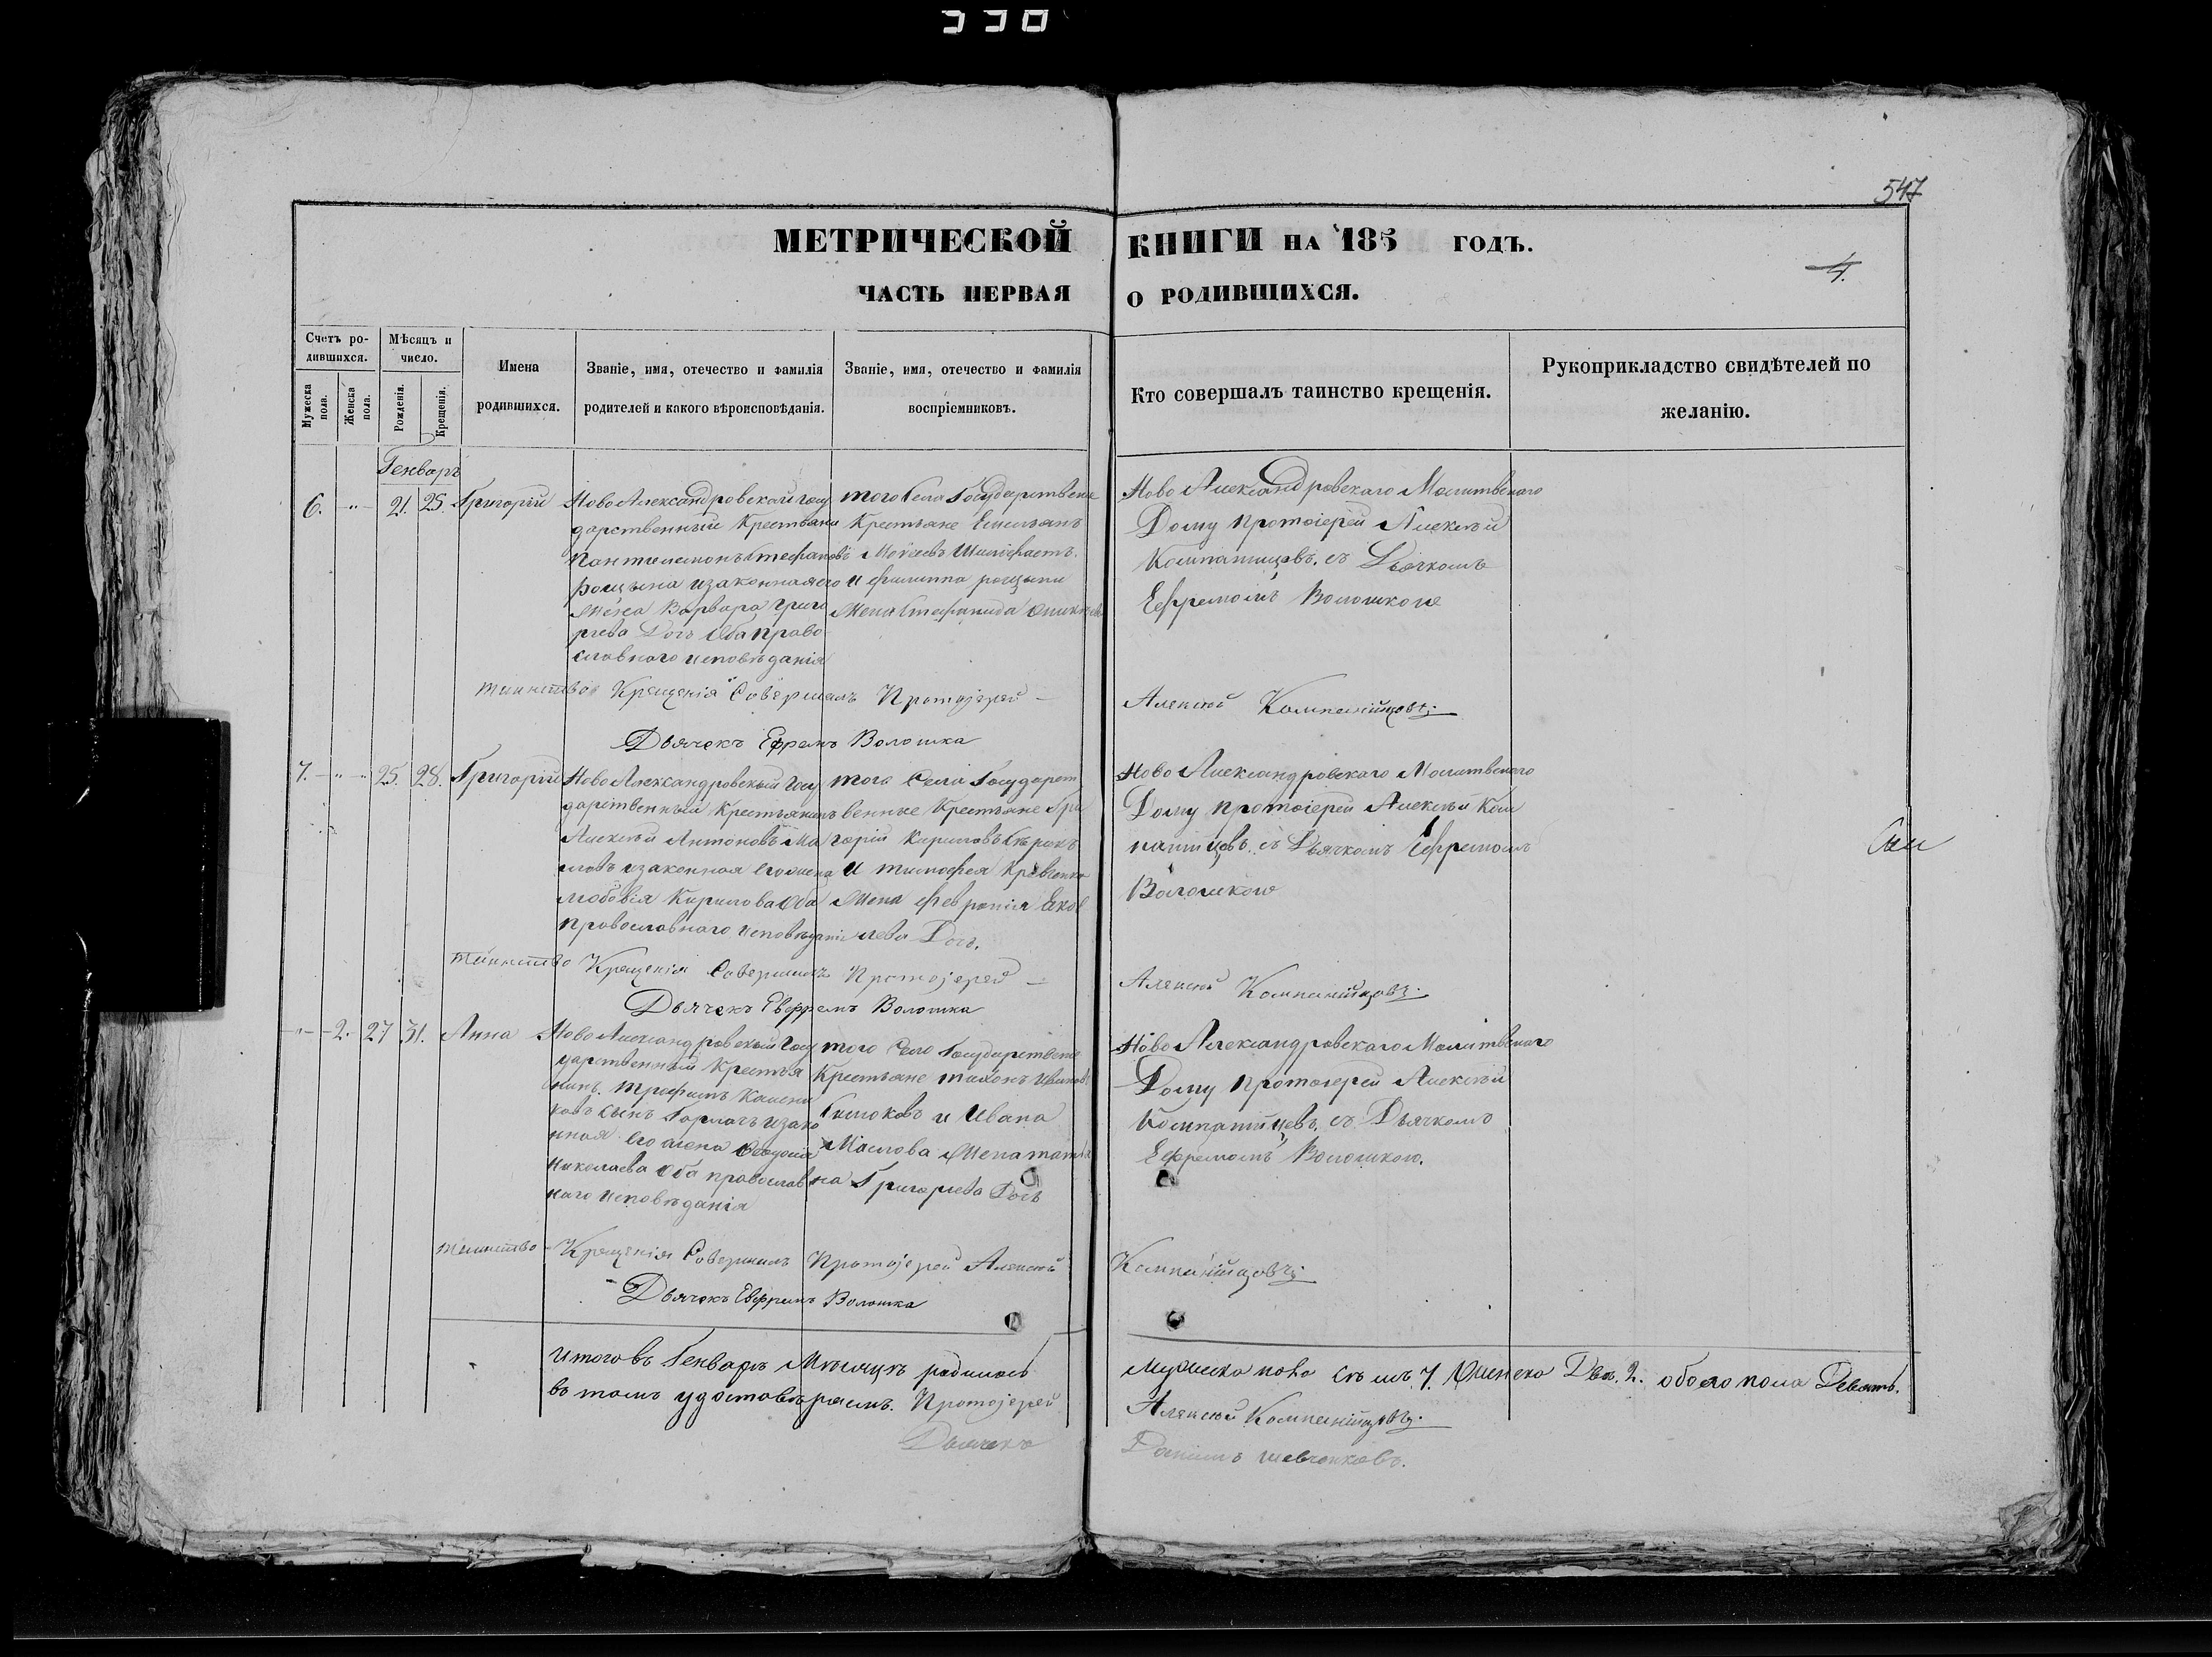 330
547
МЕТРИЧЕСКОЙ КНИГИ НА 185 ГОДЪ.
4.
ЧАСТЬ ПЕРВАЯ О РОДИВШИХСЯ.
Счетъ ро-
дившихся.
Мужеска пола.
Женска пола.
Мѣсяцъ и
число.
Рожденія.
Крещенія.
Имена
родившихся.
Званіе, имя, отечество и фамилія
родителей и какого вѣроисповѣданія.
Званіе, имя, отечество и фамилія
воспріемниковъ.
Кто совершалъ таинство крещенія.
Рукоприкладство свидѣтелей по
желанію.
Генваръ
6. - " - 21. 25. Григорій
Ново Александровскай Госу
дарственный Крестьяни
Пантилемонъ Стефановъ
изаконная его
Жена Варвара Григо
риева Дочь Оба право
славного исповѣданія
того Села Государствене
Крестьяне Емельянъ
Моѵсеевъ
и Филиппа
Жена Стефанида
Ново Александровскаго Молитвеного
Дому протоіерей Алексѣй
Компаницовъ. съ Дьячкомъ
Ефремомъ Волошкою
таинство Крещенія Совершилъ Протоіерей - Алексѣй Компанійцовъ.
Дьячекъ Ефремъ Волошка
7. - " - 25. 28. Григорій
Ново Александровскый Госу
дарственный Крестьянинъ
Алексѣй Антоновъ
изаконная Его жена
Любовія Кирилова Оба
Православного исповѣданія
того Села Государст
венные Крестьяне Гри
горій Кириловъ
и Тимофея Кравченка
Жена Февронія Яков
лева Дочь.
Ново Александровскаго Молитвеного
Дому протоіерей Алексѣй Ком
паницевъ. съ Дьячкомъ Ефремомъ
Волошкою
таинство Крещенія Совершилъ Протоіерей - Алексѣй Компанійцовъ.
Дьячекъ Евфремъ Волошка
- " - 2. 27 31. Анна
Ново Александровскый Госу
дарственный Крестья
нинъ. Трофимъ
сынъ изако
нная Его жена Феодосія
Николаева Оба православ
наго исповѣданія
того Села Государствене
Крестьяне Тихонъ Ивановъ
и Ивана
Маслова Жена Татья
на Григорьева Дочь
Ново Александровскаго Молитвеного
Дому протоіерей Алексѣй
Компаницевъ. съ Дьячкомъ
Ефремомъ Волошкою.
таинство Крещенія Совершилъ Протоіерей Алексѣй Компанійцовъ.
Дьячекъ Евфремъ Волошка
Итого въ Генварѣ Мѣсяцѣ родилось мужеска пола семъ 7. женска Двѣ. 2. обоего пола Девять.
въ томъ удостовѣряемъ. Протоіерей Алексѣй Компанійцовъ.
Дьячекъ Данилъ Шевченковъ.